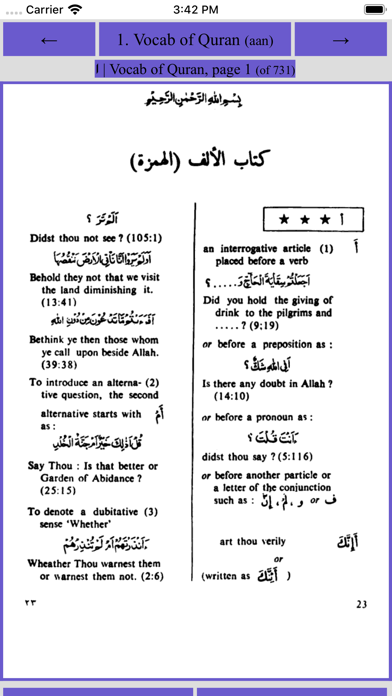 Carrier 3:42 PM
← 1. Vocab of Quran (aan) →
| Vocab of Quran, page 1 (of 731)
بِسْمِ اللهِ الرَّحْمٰنِ الرَّحِيْمِ
كتاب الألف (الهمزة)
أ ★ ★ ★
an interrogative article (1) أَ
placed before a verb
اَجَعَلْتُمْ سِقَايَةَ الْحَآجِّ وَ..... ؟
Did you hold the giving of
drink to the pilgrims and
..... ? (9;19)
or before a preposition as :
اَفِى اللهِ شَكٌّ ؟
Is there any doubt in Allah ?
(14:10)
or before a pronoun as :
ءَاَنْتَ قُلْتَ ؟
didst thou say ? (5:116)
or before another particle or
a letter of the conjunction
such as : و ,لَمْ ,إِنَّ or ف
art thou verily أَإِنَّكَ
or
(written as أَئِنَّكَ )
23
اَلَمْ تَرَ ؟
Didst thou not see ? (105:1)
اَوَلَمْ يَرَوْا اَنَّا نَأْتِى الْاَرْضَ نَنْقُصُهَا
Behold they not that we visit
the land diminishing it.
(13:41)
اَفَرَءَيْتُمْ مَّا تَدْعُوْنَ مِنْ دُوْنِ اللهِ
Bethink ye then those whom
ye call upon beside Allah.
(39:38)
To introduce an alterna- (2)
tive question, the second
alternative starts with أَمْ
as :
قُلْ اَذٰلِكَ خَيْرٌ اَمْ جَنَّةُ الْخُلْدِ
Say Thou : Is that better or
Garden of Abidance ?
(25:15)
To denote a dubitative (3)
sense 'Whether'
ءَاَنْذَرْتَهُمْ اَمْ لَمْ تُنْذِرْهُمْ
Wheather Thou warnest them
or warnest them not. (2:6)
٢٣